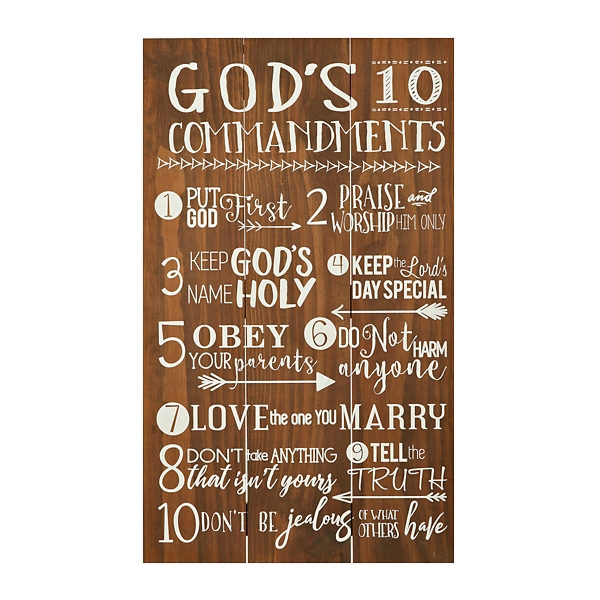 GOD'S 10
COMMANDMENTS
1 PUT GOD First
2 PRAISE and WORSHIP HIM ONLY
3 KEEP GOD'S NAME HOLY
4 KEEP the Lord's DAY SPECIAL
5 OBEY YOUR parents
6 DO Not HARM anyone
7 LOVE the one YOU MARRY
8 DON'T take ANYTHING that isn't yours
9 TELL the TRUTH
10 DON'T BE jealous OF WHAT OTHERS have